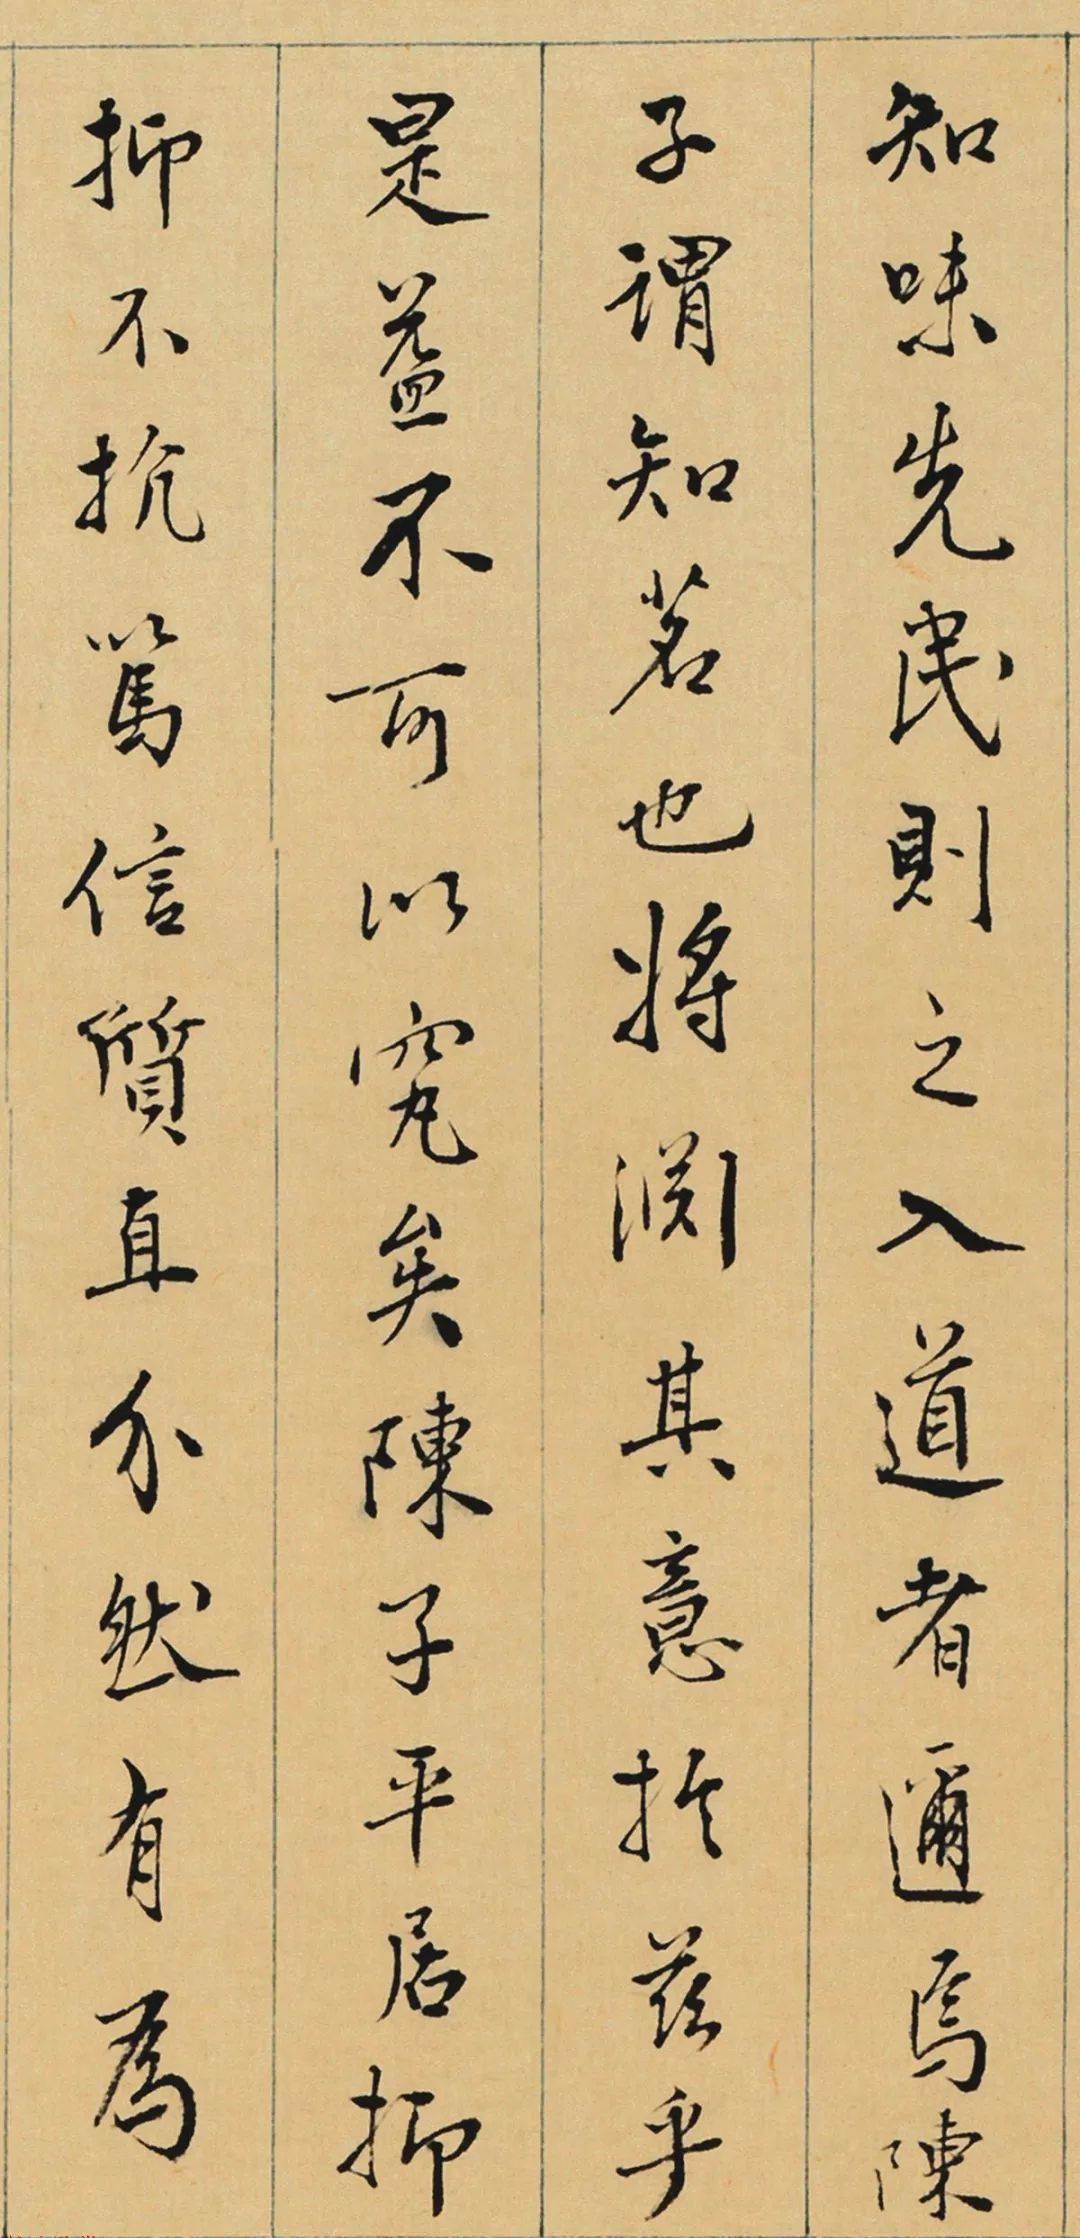 知味先民則之入道者邇焉陳
子謂知茗也將淵其意於茲乎
是蓋不可以究矣陳子平居抑
抑不抗篤信質直介然有為